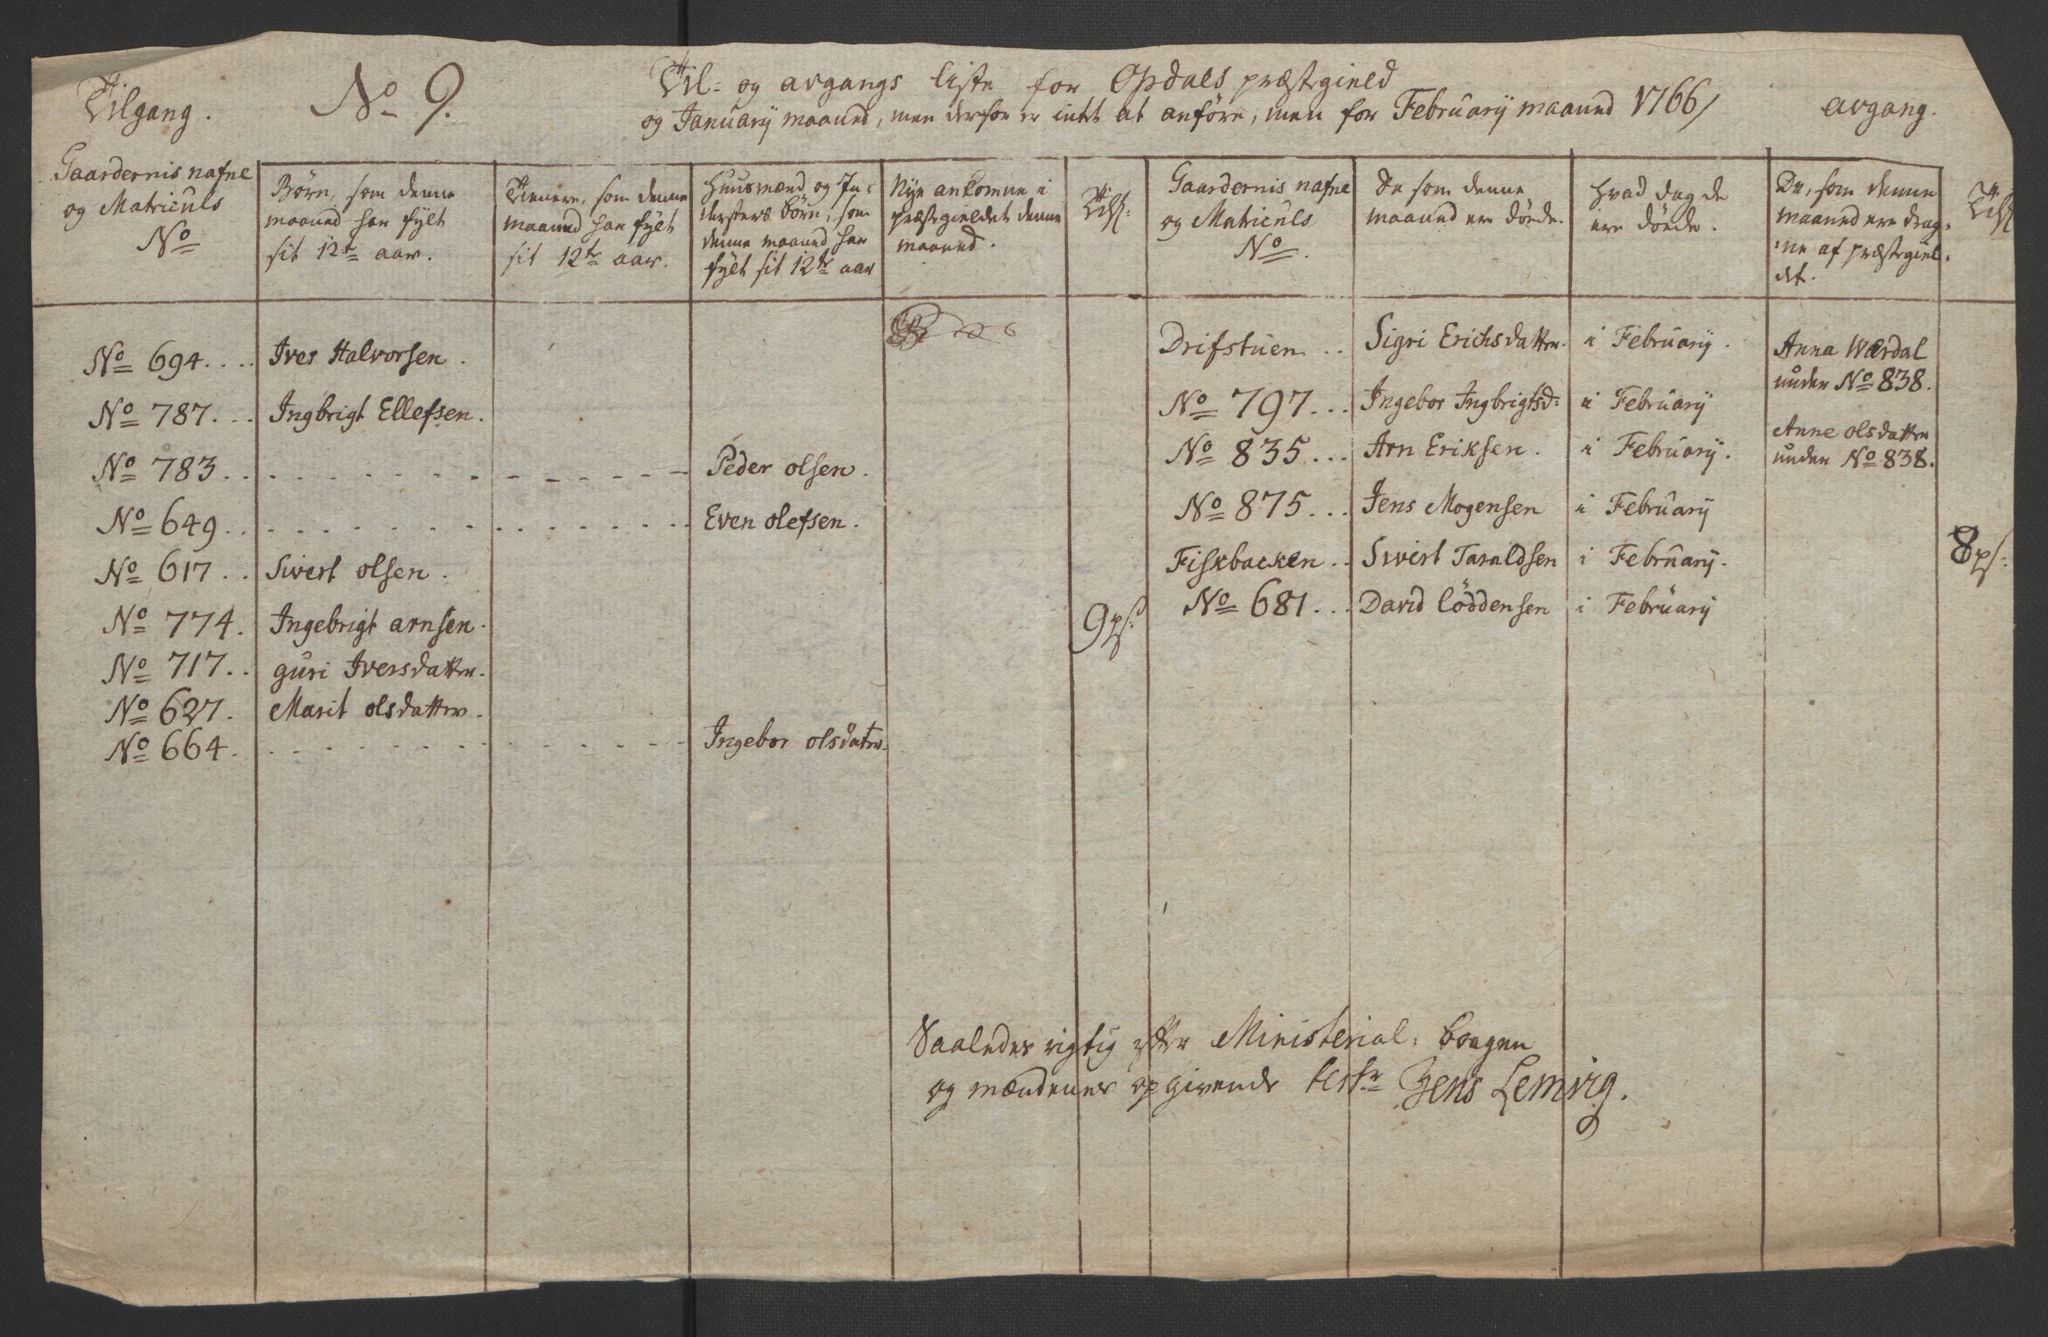 Tilgang.
No 9.
Til- og avgangs Liste for Opdals præstegield
og Januarij maaned, men derfor er intet at anføre, men for Februarij maaned 1766/
avgang.
Gaardernis nafne
og Matriculs
No
Børn, som denne
maaned har fylt
sit 12te aar.
Tienere, som denne
maaned har fylt
sit 12te aar.
Huusmænd og In-
dersters börn, som
denne maaned har
fylt sit 12te aar
Nye ankomne i
præstegieldet denne
maaned.
Gaardernis nafne
og Matriculs
No.
De som denne
maaned ere döede.
Hvad dag de
ere döede.
De, som denne
maaned ere drag-
ne af præstegiel-
det.
No 694.... Iver Halvorsen.
No 787... Ingbrigt Ellefsen.
No 783.. Peder olsen.
No 649.. Even olefsen.
No 617.. Sivert olsen.
No 774. Ingebrigt arnsen.
No 717.. guri Iversdatter.
No 627. Marit olsdatter.
No 664. Ingebor olsdatr.
9 ps:
Drifstuen.. Sigri Erichsdatter. i Februarij.
No 797... Ingebor Ingbrigtsd: i Februarij
No 835... Arn Eriksen. i Februarij.
No 875... Jens Mogensen i Februarij
Fiskbacken.. Sivert Taraldsen i Februarij.
No 681... David Löddensen i Februarij
Anna Wærdal
under No 838.
Anne olsdatter
under No 838.
8 ps:
Saaledes rigtig efter Ministerial-bogen
og mændenes opgivende test: Jens Lemvig.